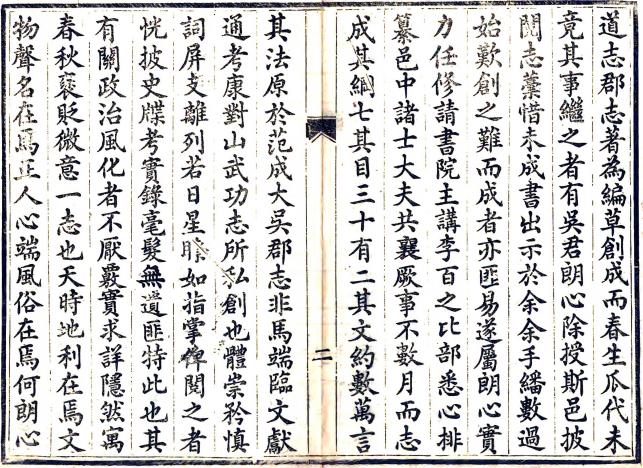 道志郡志著為編草創成而春生瓜代未
竟其事繼之者有吳君朗心除授斯邑披
閱志藁惜未成書出示於余余手繙數過
始歎創之難而成者亦匪易遂屬朗心實
力任修請書院主講李百之比部悉心排
纂邑中諸士大夫共襄厥事不數月而志
成其綱七其目三十有二其文約數萬言
二
其法原於范成大吳郡志非馬端臨文獻
通考康對山武功志所私創也體崇矜慎
詞屏支離列若日星瞭如指掌俾閱之者
恍披史牒考實錄毫髮無遺匪特此也其
有關政治風化者不厭覈實求詳隱然寓
春秋褒貶微意一志也天時地利在焉文
物聲名在焉正人心端風俗在焉何朗心